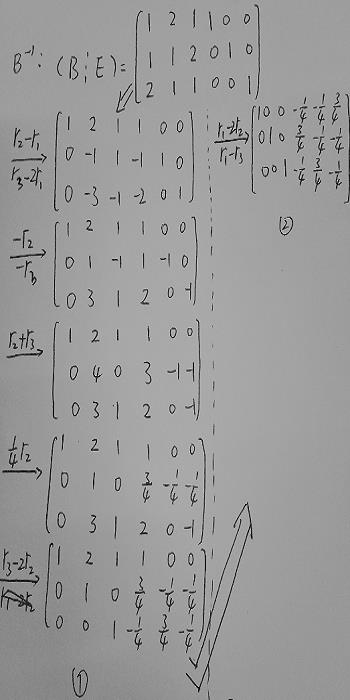 B⁻¹: (B¦E) = [1 2 1 1 0 0
1 1 2 0 1 0
2 1 1 0 0 1]
r₂-r₁
r₃-2r₁
[1 2 1 1 0 0
0 -1 1 -1 1 0
0 -3 -1 -2 0 1]
-r₂
-r₃
[1 2 1 1 0 0
0 1 -1 1 -1 0
0 3 1 2 0 -1]
r₂+r₃
[1 2 1 1 0 0
0 4 0 3 -1 -1
0 3 1 2 0 -1]
1/4 r₂
[1 2 1 1 0 0
0 1 0 3/4 -1/4 -1/4
0 3 1 2 0 -1]
r₃-2r₂
[1 2 1 1 0 0
0 1 0 3/4 -1/4 -1/4
0 0 1 -1/4 3/4 -1/4]
①
r₁-2r₂
r₁-r₃
[1 0 0 -1/4 -1/4 3/4
0 1 0 3/4 -1/4 -1/4
0 0 1 -1/4 3/4 -1/4]
②